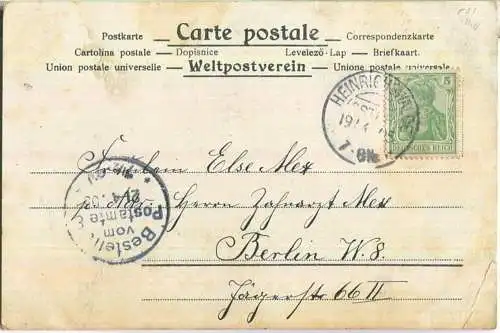 Postkarte
Carte postale
Correspondenzkarte
Cartolina postale — Dopisnice
Levelező-Lap — Briefkaart.
Union postale universelle
Weltpostverein
Unione postale universale
5
DEUTSCHES REICH
HEINRICHS
19/4
7-8N.
Fräulein Else Alex
p. Adr. Herrn Zahnarzt Alex
Bestellt
vom
Postamte
Berlin W. 8.
Jägerstr 66 II